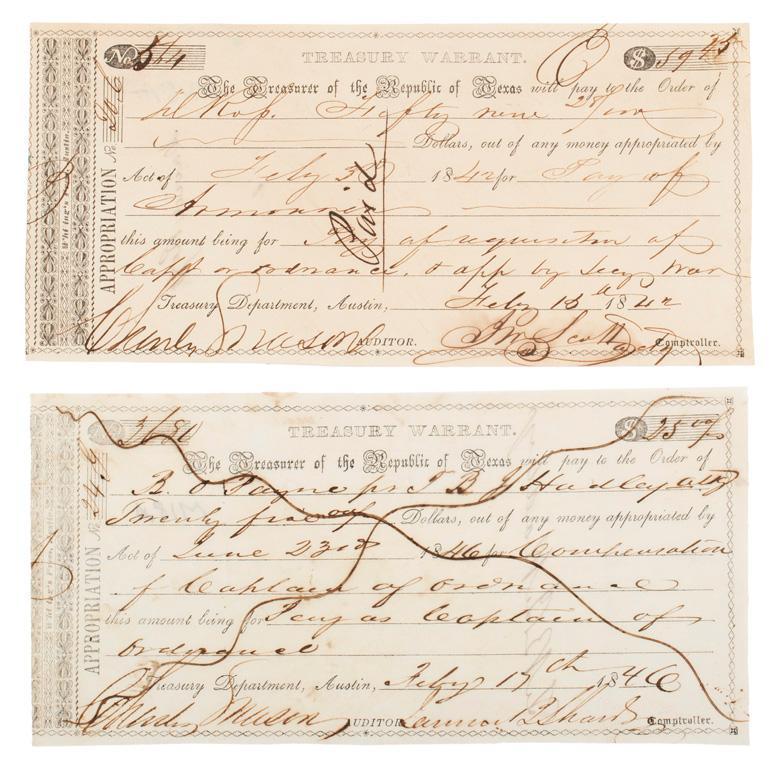 No. 514 TREASURY WARRANT. $ 59 25
The Treasurer of the Republic of Texas will pay to the Order of
Fifty nine
Dollars, out of any money appropriated by
Act of Feby 3d 1842 for Pay of
APPROPRIATION No.
this amount being for Pay of requisition of
Capt of ordnance, & app by Secy War
Paid
Treasury Department, Austin, Feby 18 1842
Charles Mason AUDITOR. Jn Scott Comptroller.
No. TREASURY WARRANT. $ 25
The Treasurer of the Republic of Texas will pay to the Order of
B. O Payne pr T B J Hadley atty
Twenty five Dollars, out of any money appropriated by
Act of June 23rd 1846 for Compensation
APPROPRIATION No.
of Captain of ordnance
this amount being for Pay as Captain of
ordnance
Treasury Department, Austin, Feby 17th 1846
Charles Mason AUDITOR Comptroller.